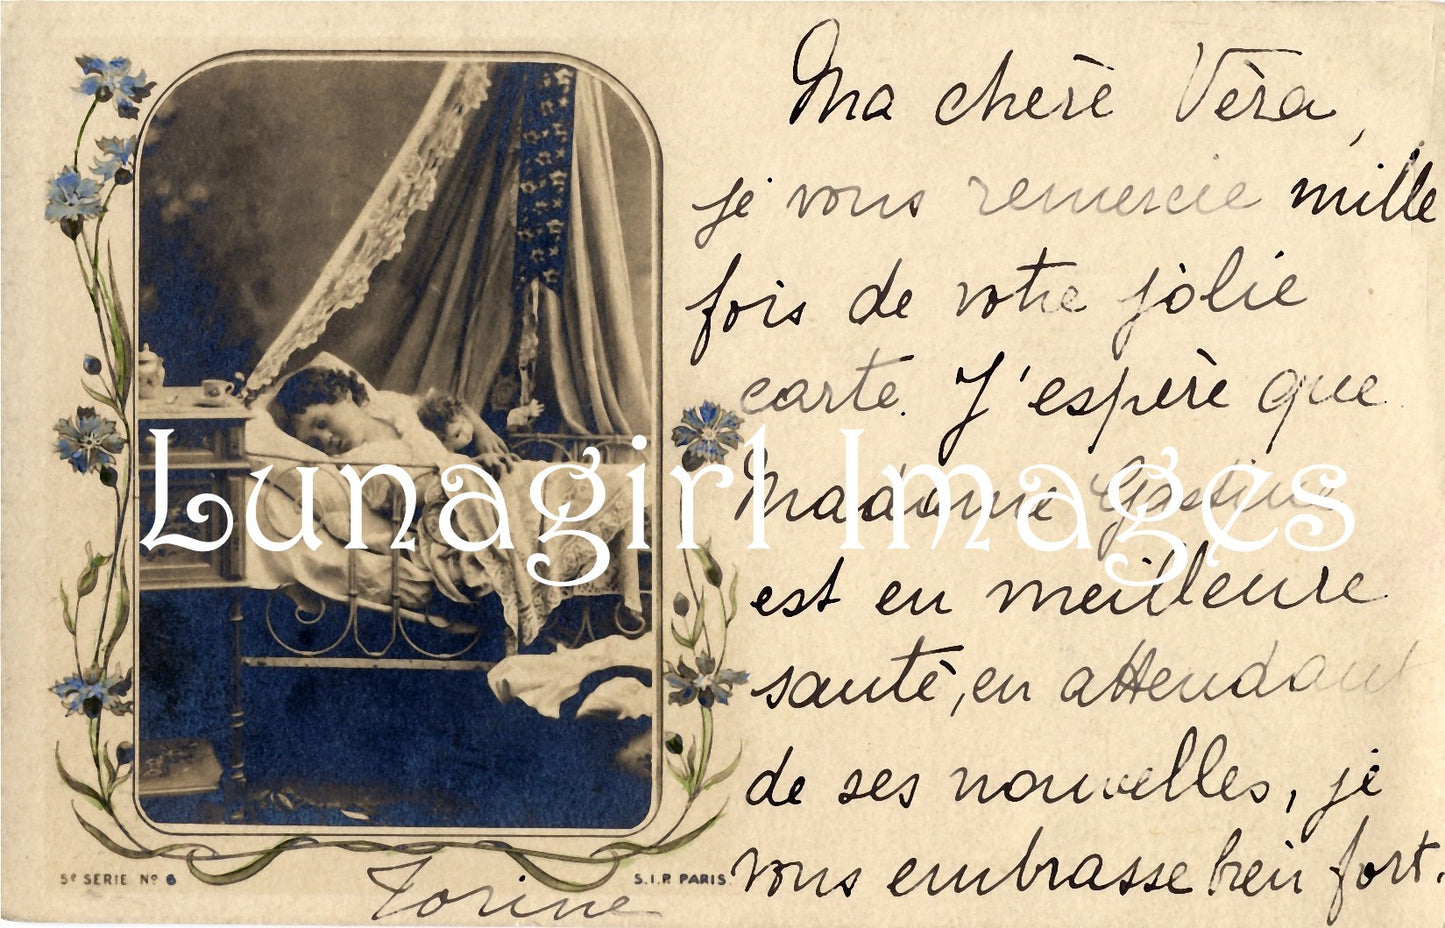 Ma chèrè Vèra,
je vous remercie mille
fois de votre jolie
carte. J'espère que
Madame
est en meilleure
santé, en attendant
de ses nouvelles, je
vous embrasse bien fort.
Lunagirl Images
5e SERIE No 6
S.I.P. PARIS.